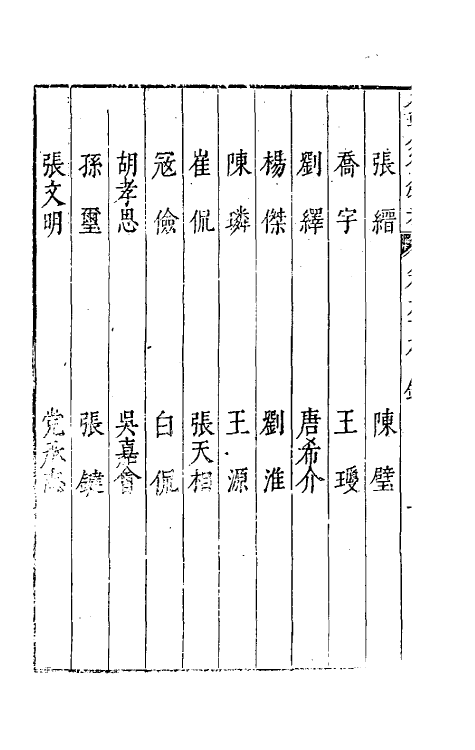 張縉　陳璧
喬宇　王璦
劉繹　唐希介
楊傑　劉淮
陳璘　王源
崔侃　張天相
寇儉　白侃
胡孝思　吳嘉會
孫璽　張鐃
張文明　党承志